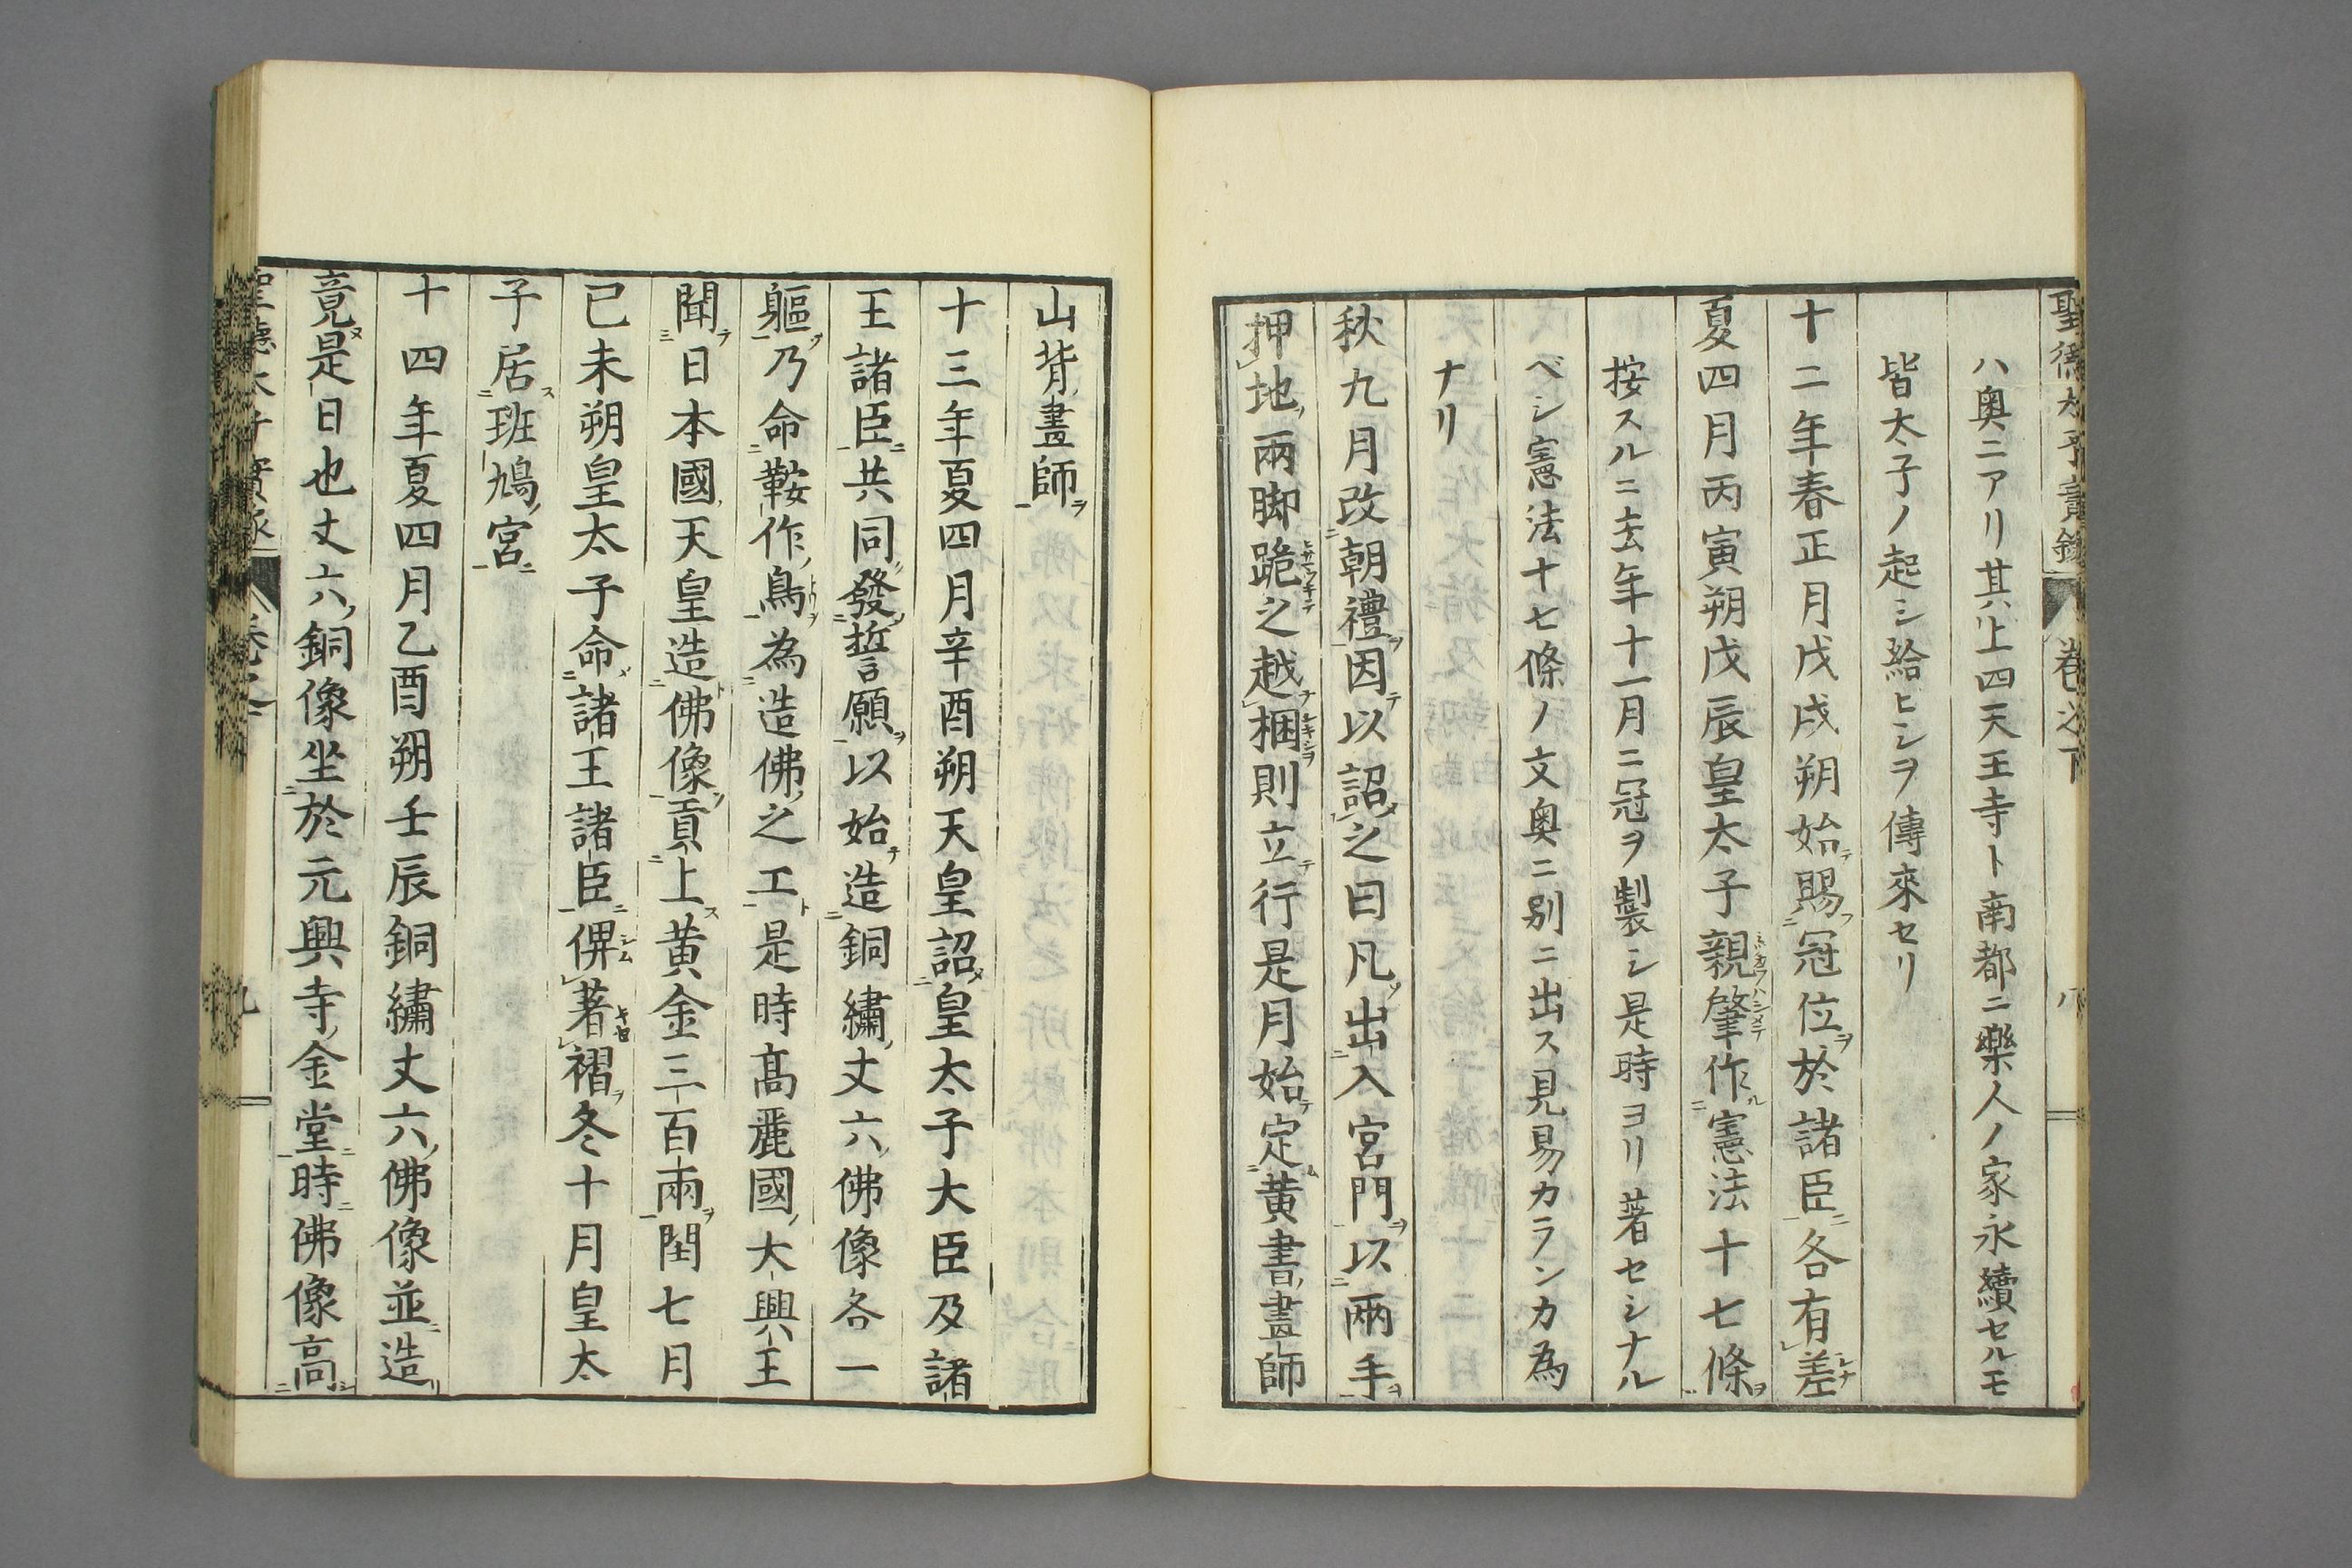 聖德太子實錄 卷之下 八
ハ奥ニアリ其上四天王寺ト南都ニ樂人ノ家永續セルモ
皆太子ノ起シ給ヒシヲ傳來セリ
十二年春正月戊戌朔始賜冠位於諸臣各有差
夏四月丙寅朔戊辰皇太子親肇作憲法十七條
按スルニ去年十一月ニ冠ヲ製シ是時ヨリ著セシナル
ベシ憲法十七條ノ文奥ニ別ニ出ス見易カランカ為
ナリ
秋九月改朝禮因以詔之曰凡出入宮門以兩手
押地兩脚跪之越梱則立行是月始定黄書畫師
山背畫師
十三年夏四月辛酉朔天皇詔皇太子大臣及諸
王諸臣共同發誓願以始造銅繡丈六佛像各一
軀乃命鞍作鳥為造佛之工是時髙麗國大興王
聞日本國天皇造佛像貢上黄金三百兩閏七月
己未朔皇太子命諸王諸臣俾著褶冬十月皇太
子居班鳩宮
十四年夏四月乙酉朔壬辰銅繡丈六佛像並造
竟是日也丈六銅像坐於元興寺金堂時佛像高
聖德太子實錄 九